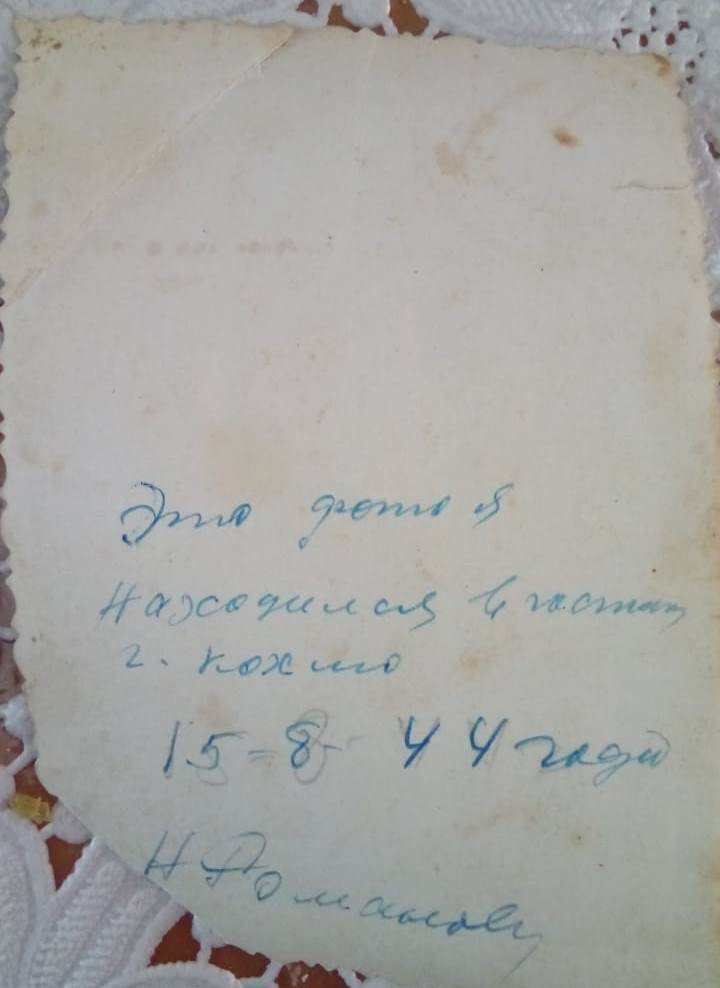 Это фото я
находился в частях
г. кохмо
15-8-44 года
Н Романов